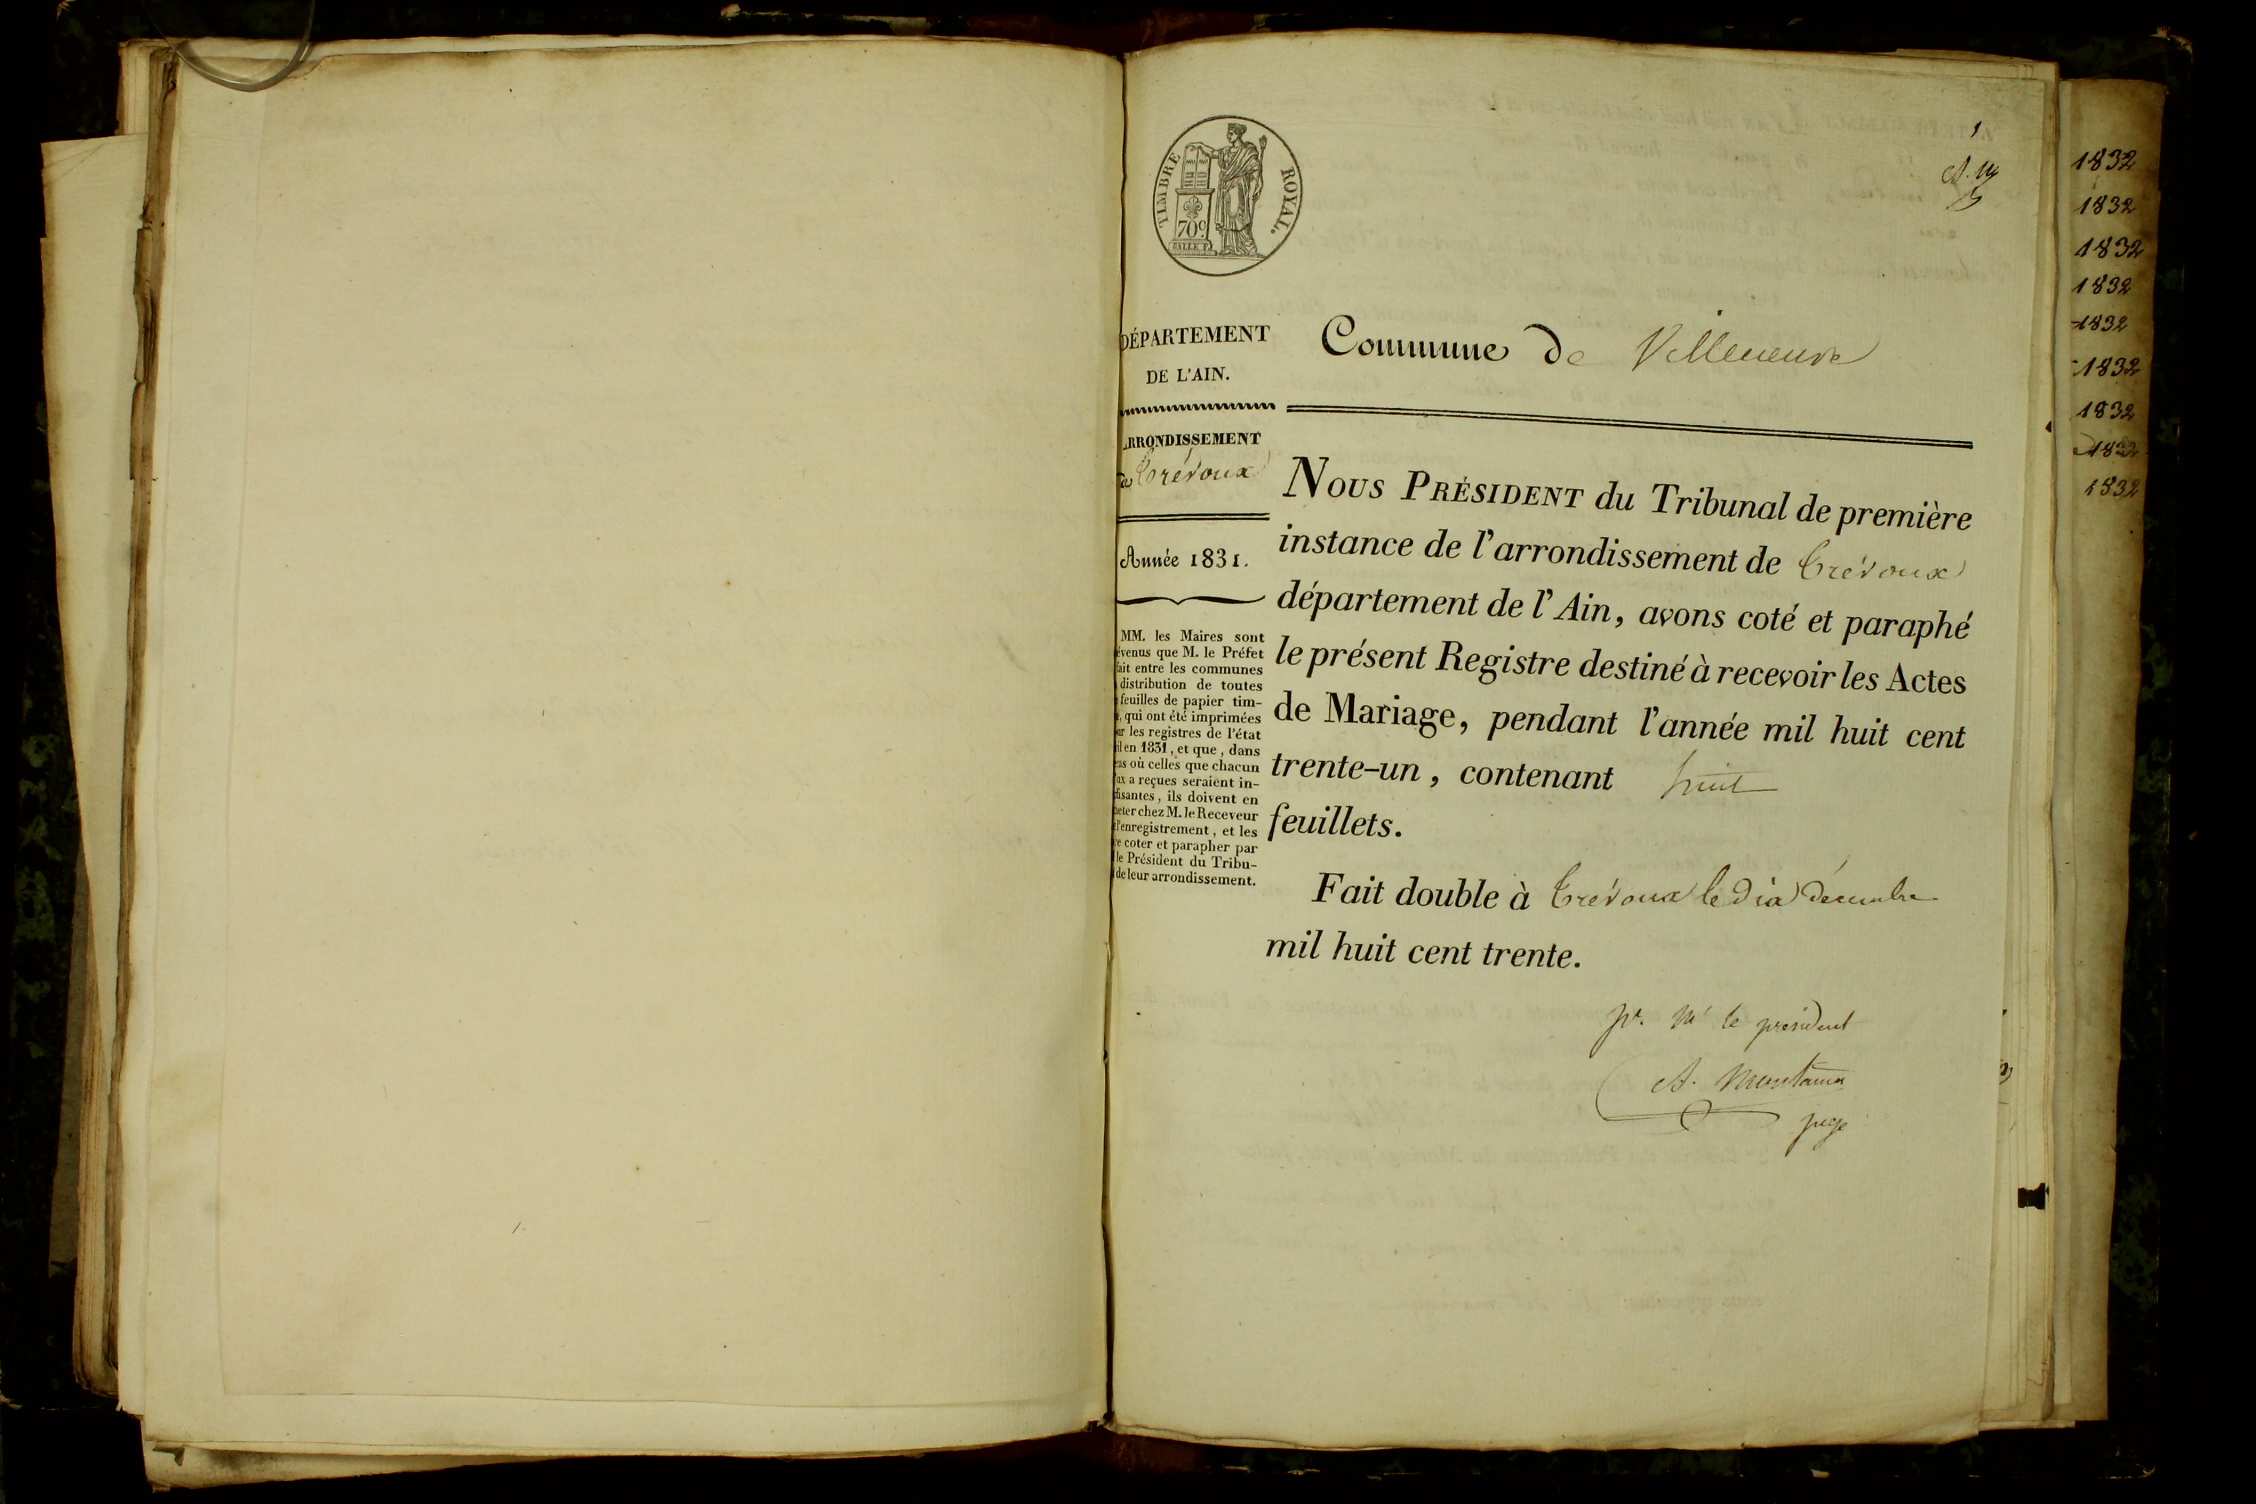 1
A. M
TIMBRE ROYAL.
70c
DÉPARTEMENT
DE L'AIN.
ARRONDISSEMENT
de Trévoux
Année 1831.
MM. les Maires sont
évenus que M. le Préfet
fait entre les communes
distribution de toutes
feuilles de papier tim-
, qui ont été imprimées
ur les registres de l'état
il en 1831, et que, dans
cas où celles que chacun
ux a reçues seraient in-
fisantes, ils doivent en
heter chez M. le Receveur
l'enregistrement, et les
re coter et parapher par
le Président du Tribu-
de leur arrondissement.
Commune de Villeneuve
NOUS PRÉSIDENT du Tribunal de première
instance de l'arrondissement de Trévoux
département de l'Ain, avons coté et paraphé
le présent Registre destiné à recevoir les Actes
de Mariage, pendant l'année mil huit cent
trente-un, contenant huit
feuillets.
Fait double à Trévoux le dix décembre
mil huit cent trente.
pr. Mr le president
A. 
juge
1832
1832
1832
1832
1832
1832
1832
1832
1832